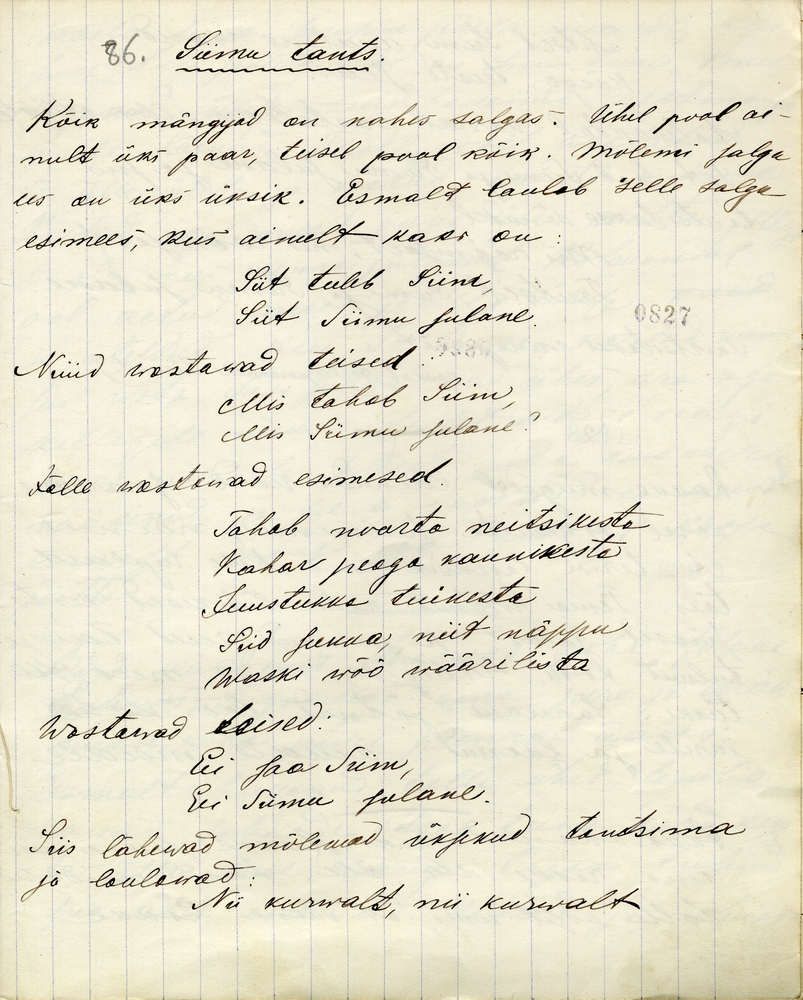 86. Siimu tants.
Kõik mängijad on kahes salgas. Ühel pool ai-
nult üks paar, teisel pool kõik. Mõlemi salga
es on üks üksik. Esmalt laulab selle salga
esimees, kus ainult kaks on:
Siit tuleb Siim,
Siit Siimu sulane.
0827
Nüüd wastawad teised:
Mis tahab Siim,
Mis Siimu sulane?
Jälle wastawad esimesed.
Tahab noorta neitsikesta
Kahar peaga kaunikesta
Juustukka tuikesta
Siid sukka, niit näppu
Waski wöö wäärilista
Wastawad teised:
Ei saa Siim,
Ei Siimu sulane.
Siis lähewad mõlemad üksikud tantsima
ja laulawad:
Nii kurwalt, nii kurwalt